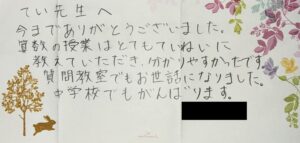 てい先生へ
今までありがとうございました。
算数の授業はとてもていねいに
教えていただき、分かりやすかったです。
質問教室でもお世話になりました。
中学校でもがんばります。